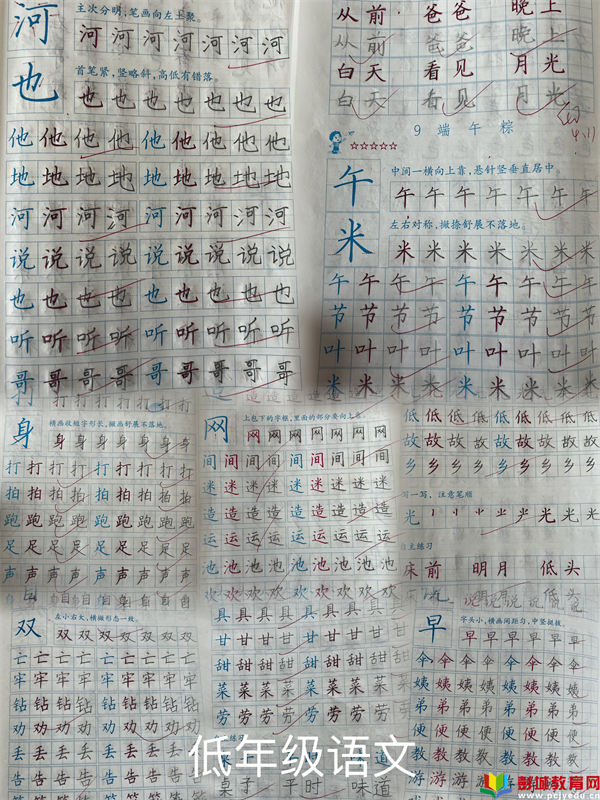 河
主次分明,笔画向左上聚。
河 河 河 河 河 河 河
也
首笔紧,竖略斜,高低有错落。
也 也 也 也 也 也 也
他 他 他 他 他 他 他 他
地 地 地 地 地 地 地 地
河 河 河 河 河 河 河 河
说 说 说 说 说 说 说 说
也 也 也 也 也 也 也 也
听 听 听 听 听 听 听 听
哥 哥 哥 哥 哥 哥 哥 哥
从前 爸爸 晚上
从前 爸爸 晚上
白天 看见 月光
白天 看见 月光
9 端午粽
☆☆☆☆☆
午
中间一横向上靠,悬针竖垂直居中。
午 午 午 午 午 午 午
米
左右对称,撇捺舒展不落地。
米 米 米 米 米 米 米
午 午 午 午 午 午 午 午
节 节 节 节 节 节 节 节
叶 叶 叶 叶 叶 叶 叶 叶
米 米 米 米 米 米 米 米
身
横画收短字形长,撇画舒展不落地。
身 身 身 身 身 身 身
打 打 打 打 打 打 打 打
拍 拍 拍 拍 拍 拍 拍 拍
跑 跑 跑 跑 跑 跑 跑 跑
足 足 足 足 足 足 足 足
声 声 声 声 声 声 声 声
网
网 网 网 网 网 网 网
间 间 间 间 间 间 间 间
迷 迷 迷 迷 迷 迷 迷 迷
造 造 造 造 造 造 造 造
运 运 运 运 运 运 运 运
池 池 池 池 池 池 池 池
欢 欢 欢 欢 欢 欢 欢 欢
低 低 低 低 低 低 低 低
故 故 故 故 故 故 故 故
乡 乡 乡 乡 乡 乡 乡 乡
写一写,注意笔顺
光 光 光 光
自主练习
床前 明月 低头
双
左小右大,横撇形态一致。
双 双 双 双 双 双 双
亡 亡 亡 亡 亡 亡 亡 亡
牢 牢 牢 牢 牢 牢 牢 牢
钻 钻 钻 钻 钻 钻 钻 钻
劝 劝 劝 劝 劝 劝 劝 劝
丢 丢 丢 丢 丢 丢 丢 丢
告 告 告 告 告 告 告 告
具 具 具 具 具 具 具 具
甘 甘 甘 甘 甘 甘 甘 甘
甜 甜 甜 甜 甜 甜 甜 甜
菜 菜 菜 菜 菜 菜 菜 菜
劳 劳 劳 劳 劳 劳 劳 劳
味道
早
字头小,横画间距匀,中竖挺拔。
早 早 早 早 早
伞 伞 伞 伞 伞 伞 伞
姨 姨 姨 姨 姨 姨 姨
弟 弟 弟 弟 弟 弟 弟
便 便 便 便 便 便 便
教 教 教 教 教 教 教
游 游 游 游 游 游 游
低年级语文
彭城教育网
www.pcjyedu.cn